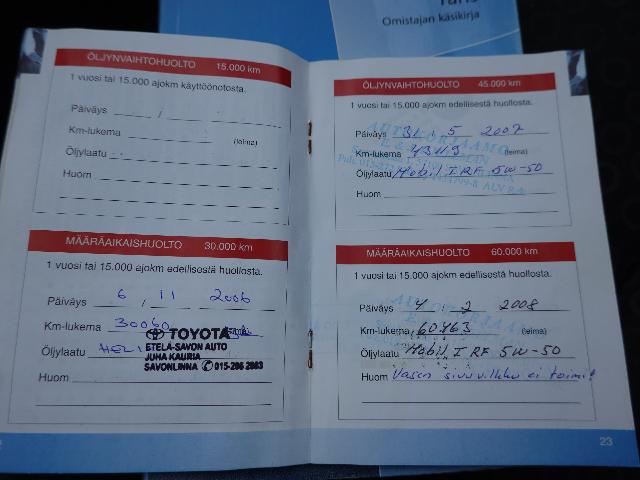 Omistajan käsikirja
ÖLJYNVAIHTOHUOLTO 15.000 km
1 vuosi tai 15.000 ajokm käyttöönotosta.
Päiväys / .
Km-lukema (leima)
Öljylaatu
Huom
MÄÄRÄAIKAISHUOLTO 30.000 km
1 vuosi tai 15.000 ajokm edellisestä huollosta.
Päiväys 6 / 11 2006
Km-lukema 30060
TOYOTA
ETELÄ-SAVON AUTO
Öljylaatu HELI
JUHA KAURIA
SAVONLINNA 015-206 2863
Huom
ÖLJYNVAIHTOHUOLTO 45.000 km
1 vuosi tai 15.000 ajokm edellisestä huollosta.
Päiväys 31 5 2007
Km-lukema 43119 (leima)
Öljylaatu Mobil 1 RF 5W-50
Huom
MÄÄRÄAIKAISHUOLTO 60.000 km
1 vuosi tai 15.000 ajokm edellisestä huollosta.
Päiväys 4 2 2008
Km-lukema 60463 (leima)
Öljylaatu Mobil 1 RF 5W-50
Huom Vasen sivuvilkku ei toimi!
23